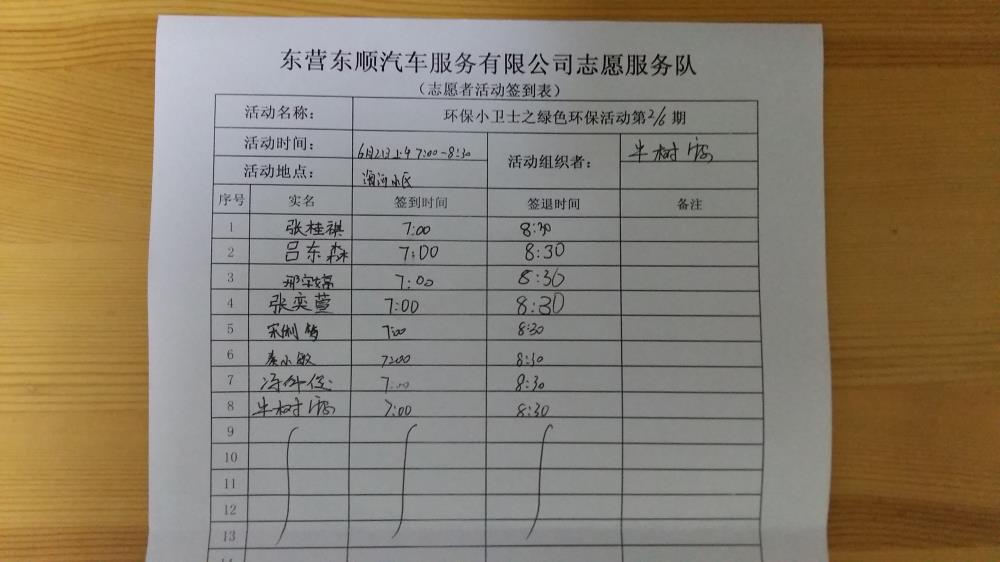 东营东顺汽车服务有限公司志愿服务队
(志愿者活动签到表)
活动名称: 环保小卫士之绿色环保活动第2/6期
活动时间: 6月21日上午7:00-8:30 活动组织者: 牛树
活动地点: 小区
序号 实名 签到时间 签退时间 备注
1 张桂祺 7:00 8:30
2 吕东森 7:00 8:30
3 7:00 8:30
4 张奕萱 7:00 8:30
5 7:00 8:30
6 小敏 7:00 8:30
7 7:00 8:30
8 牛树 7:00 8:30
9
10
11
12
13